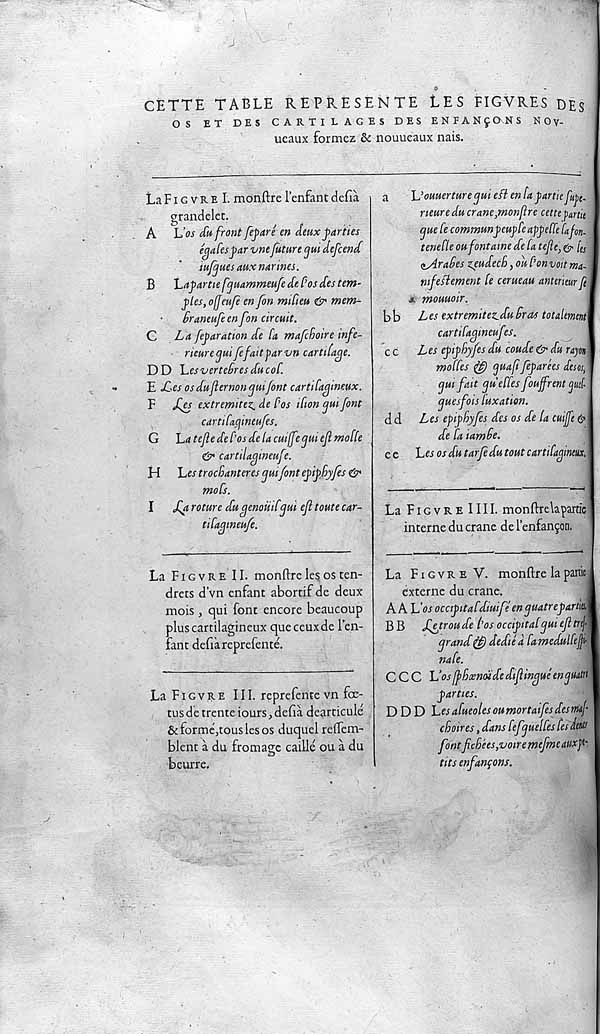 CETTE TABLE REPRESENTE LES FIGVRES DES
OS ET DES CARTILAGES DES ENFANÇONS NOV-
ueaux formez & nouueaux nais.
La FIGVRE I. monſtre l'enfant deſià
grandelet.
A L'os du front ſeparé en deux parties
égales par vne ſuture qui deſcend
iuſques aux narines.
B La partie ſquammeuſe de l'os des tem-
ples, oſſeuſe en ſon milieu & mem-
braneuſe en ſon circuit.
C La ſeparation de la maſchoire infe-
rieure qui ſe fait par vn cartilage.
D D Les vertebres du col.
E Les os du ſternon qui ſont cartilagineux.
F Les extremitez de l'os ilion qui ſont
cartilagineuſes.
G La teſte de l'os de la cuiſſe qui eſt molle
& cartilagineuſe.
H Les trochanteres qui ſont epiphyſes &
mols.
I La roture du genoüil qui eſt toute car-
tilagineuſe.
La FIGVRE II. monſtre les os ten-
drets d'vn enfant abortif de deux
mois, qui ſont encore beaucoup
plus cartilagineux que ceux de l'en-
fant deſià repreſenté.
La FIGVRE III. repreſente vn fœ-
tus de trente iours, deſià dearticulé
& formé, tous les os duquel reſſem-
blent à du fromage caillé ou à du
beurre.
a L'ouuerture qui eſt en la partie ſupe-
rieure du crane, monſtre cette partie
que le commun peuple appelle la fon-
tenelle ou fontaine de la teſte, & les
Arabes zeudech, où l'on voit ma-
nifeſtement le cerueau anterieur ſe
mouuoir.
b b Les extremitez du bras totalement
cartilagineuſes.
c c Les epiphyſes du coude & du rayon
molles & quaſi ſeparées des os,
qui fait qu'elles ſouffrent quel-
quesfois luxation.
d d Les epiphyſes des os de la cuiſſe &
de la iambe.
e e Les os du tarſe du tout cartilagineux.
La FIGVRE IIII. monſtre la partie
interne du crane de l'enfançon.
La FIGVRE V. monſtre la partie
externe du crane.
A A L'os occipital diuiſé en quatre parties.
B B Le trou de l'os occipital qui eſt treſ-
grand & dedié à la medulle ſpi-
nale.
C C C L'os ſphœnoïde diſtingué en quatre
parties.
D D D Les alueoles ou mortaiſes des maſ-
choires, dans leſquelles les dents
ſont fichées, voire meſme aux pe-
tits enfançons.